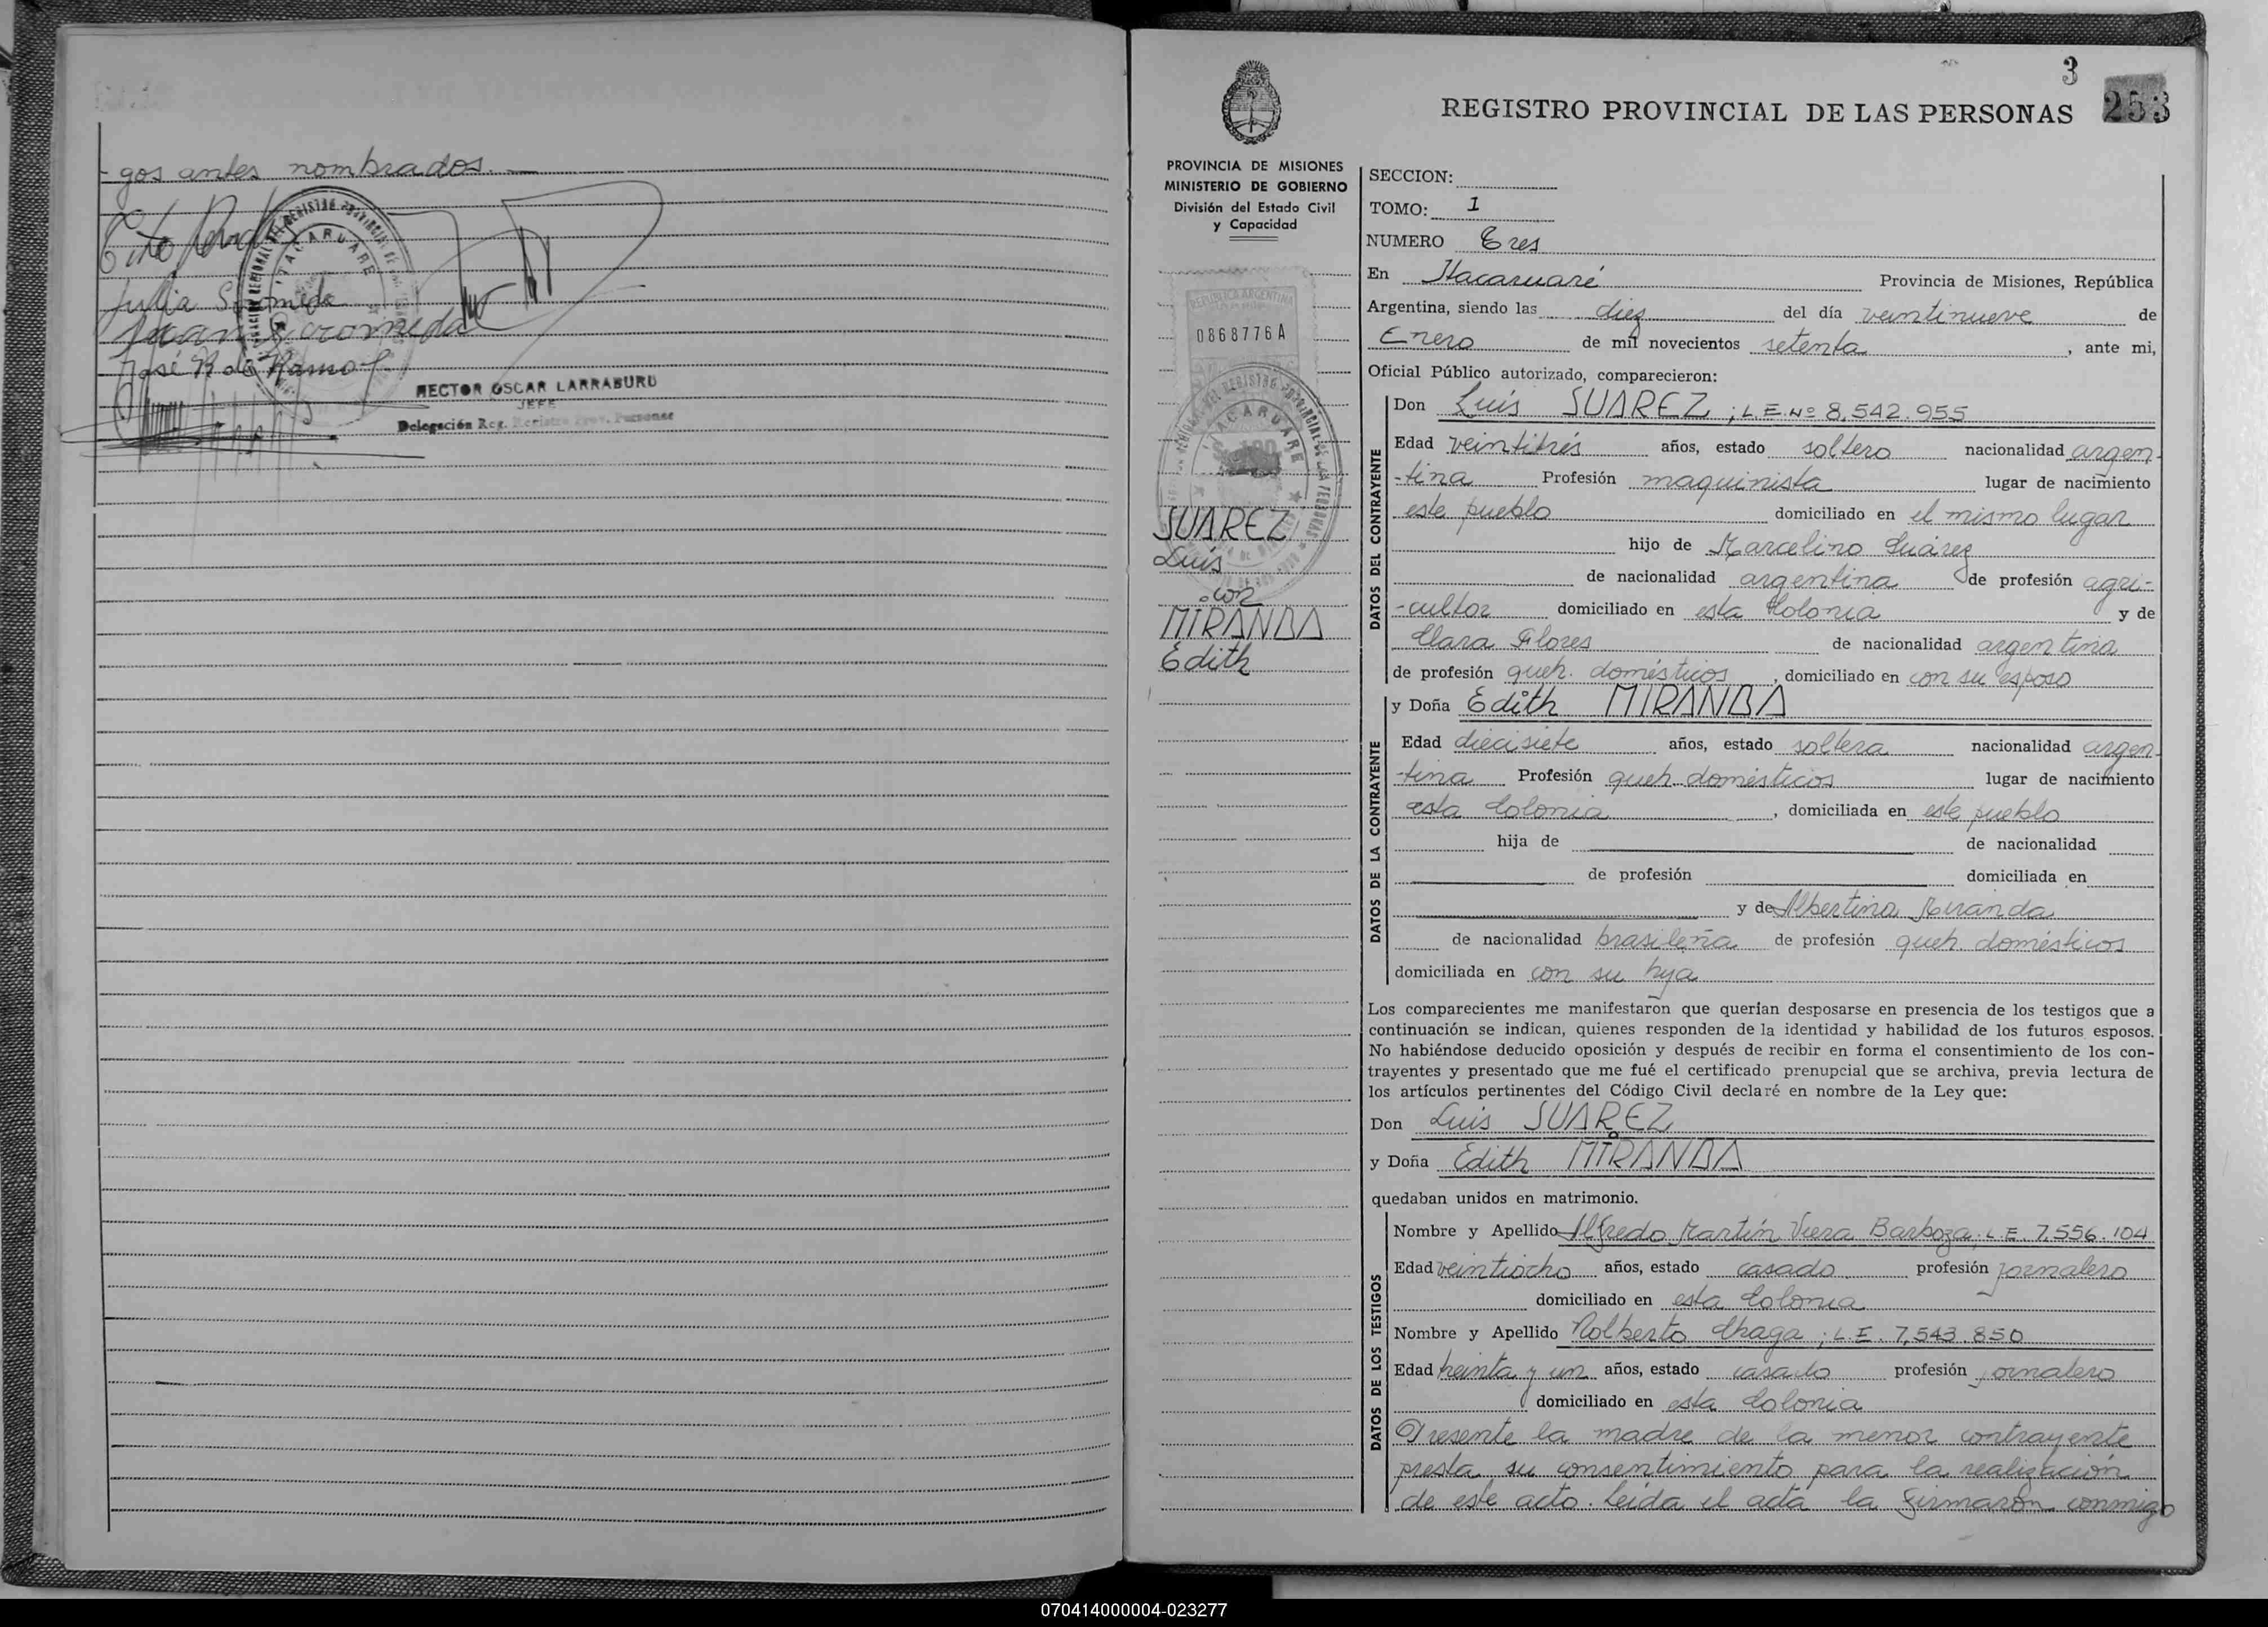 - gos antes nombrados. —
Julia S
José R. de Ramo
HECTOR OSCAR LARRABURU
JEFE
Delegación Reg. Registro Prov. Personas
ITACARUARE
3
253
REGISTRO PROVINCIAL DE LAS PERSONAS
PROVINCIA DE MISIONES
MINISTERIO DE GOBIERNO
División del Estado Civil
y Capacidad
REPUBLICA ARGENTINA
0868776A
ITACARUARE
SUAREZ
Luis
con
MIRANDA
Edith
SECCION:
TOMO: I
NUMERO Tres
En Itacaruaré Provincia de Misiones, República
Argentina, siendo las diez del día veintinueve de
Enero de mil novecientos setenta, ante mi,
Oficial Público autorizado, comparecieron:
DATOS DEL CONTRAYENTE
Don Luis SUAREZ; L.E.Nº 8.542.955
Edad veintitrés años, estado soltero nacionalidad argen-
-tina Profesión maquinista lugar de nacimiento
este pueblo domiciliado en el mismo lugar
hijo de Marcelino Suárez
de nacionalidad argentina de profesión agri-
-cultor domiciliado en esta Colonia y de
Clara Flores de nacionalidad argentina
de profesión queh. domésticos, domiciliado en con su esposo
DATOS DE LA CONTRAYENTE
y Doña Edith MIRANDA
Edad diecisiete años, estado soltera nacionalidad argen-
-tina Profesión queh. domésticos lugar de nacimiento
esta Colonia, domiciliada en este pueblo
hija de de nacionalidad
de profesión domiciliada en
y de Albertina Miranda
de nacionalidad brasileña de profesión queh. domésticos
domiciliada en con su hija
Los comparecientes me manifestaron que querían desposarse en presencia de los testigos que a
continuación se indican, quienes responden de la identidad y habilidad de los futuros esposos.
No habiéndose deducido oposición y después de recibir en forma el consentimiento de los con-
trayentes y presentado que me fué el certificado prenupcial que se archiva, previa lectura de
los artículos pertinentes del Código Civil declaré en nombre de la Ley que:
Don Luis SUAREZ
y Doña Edith MIRANDA
quedaban unidos en matrimonio.
DATOS DE LOS TESTIGOS
Nombre y Apellido Alfredo Martín Viera Barboza; L.E. 7.556.104
Edad veintiocho años, estado casado profesión jornalero
domiciliado en esta Colonia
Nombre y Apellido Nolberto Chaga; L.E. 7.543.850
Edad treinta y un años, estado casado profesión jornalero
domiciliado en esta Colonia
Presente la madre de la menor contrayente
presta su consentimiento para la realización
de este acto. Leída el acta la firmaron conmigo
070414000004-023277